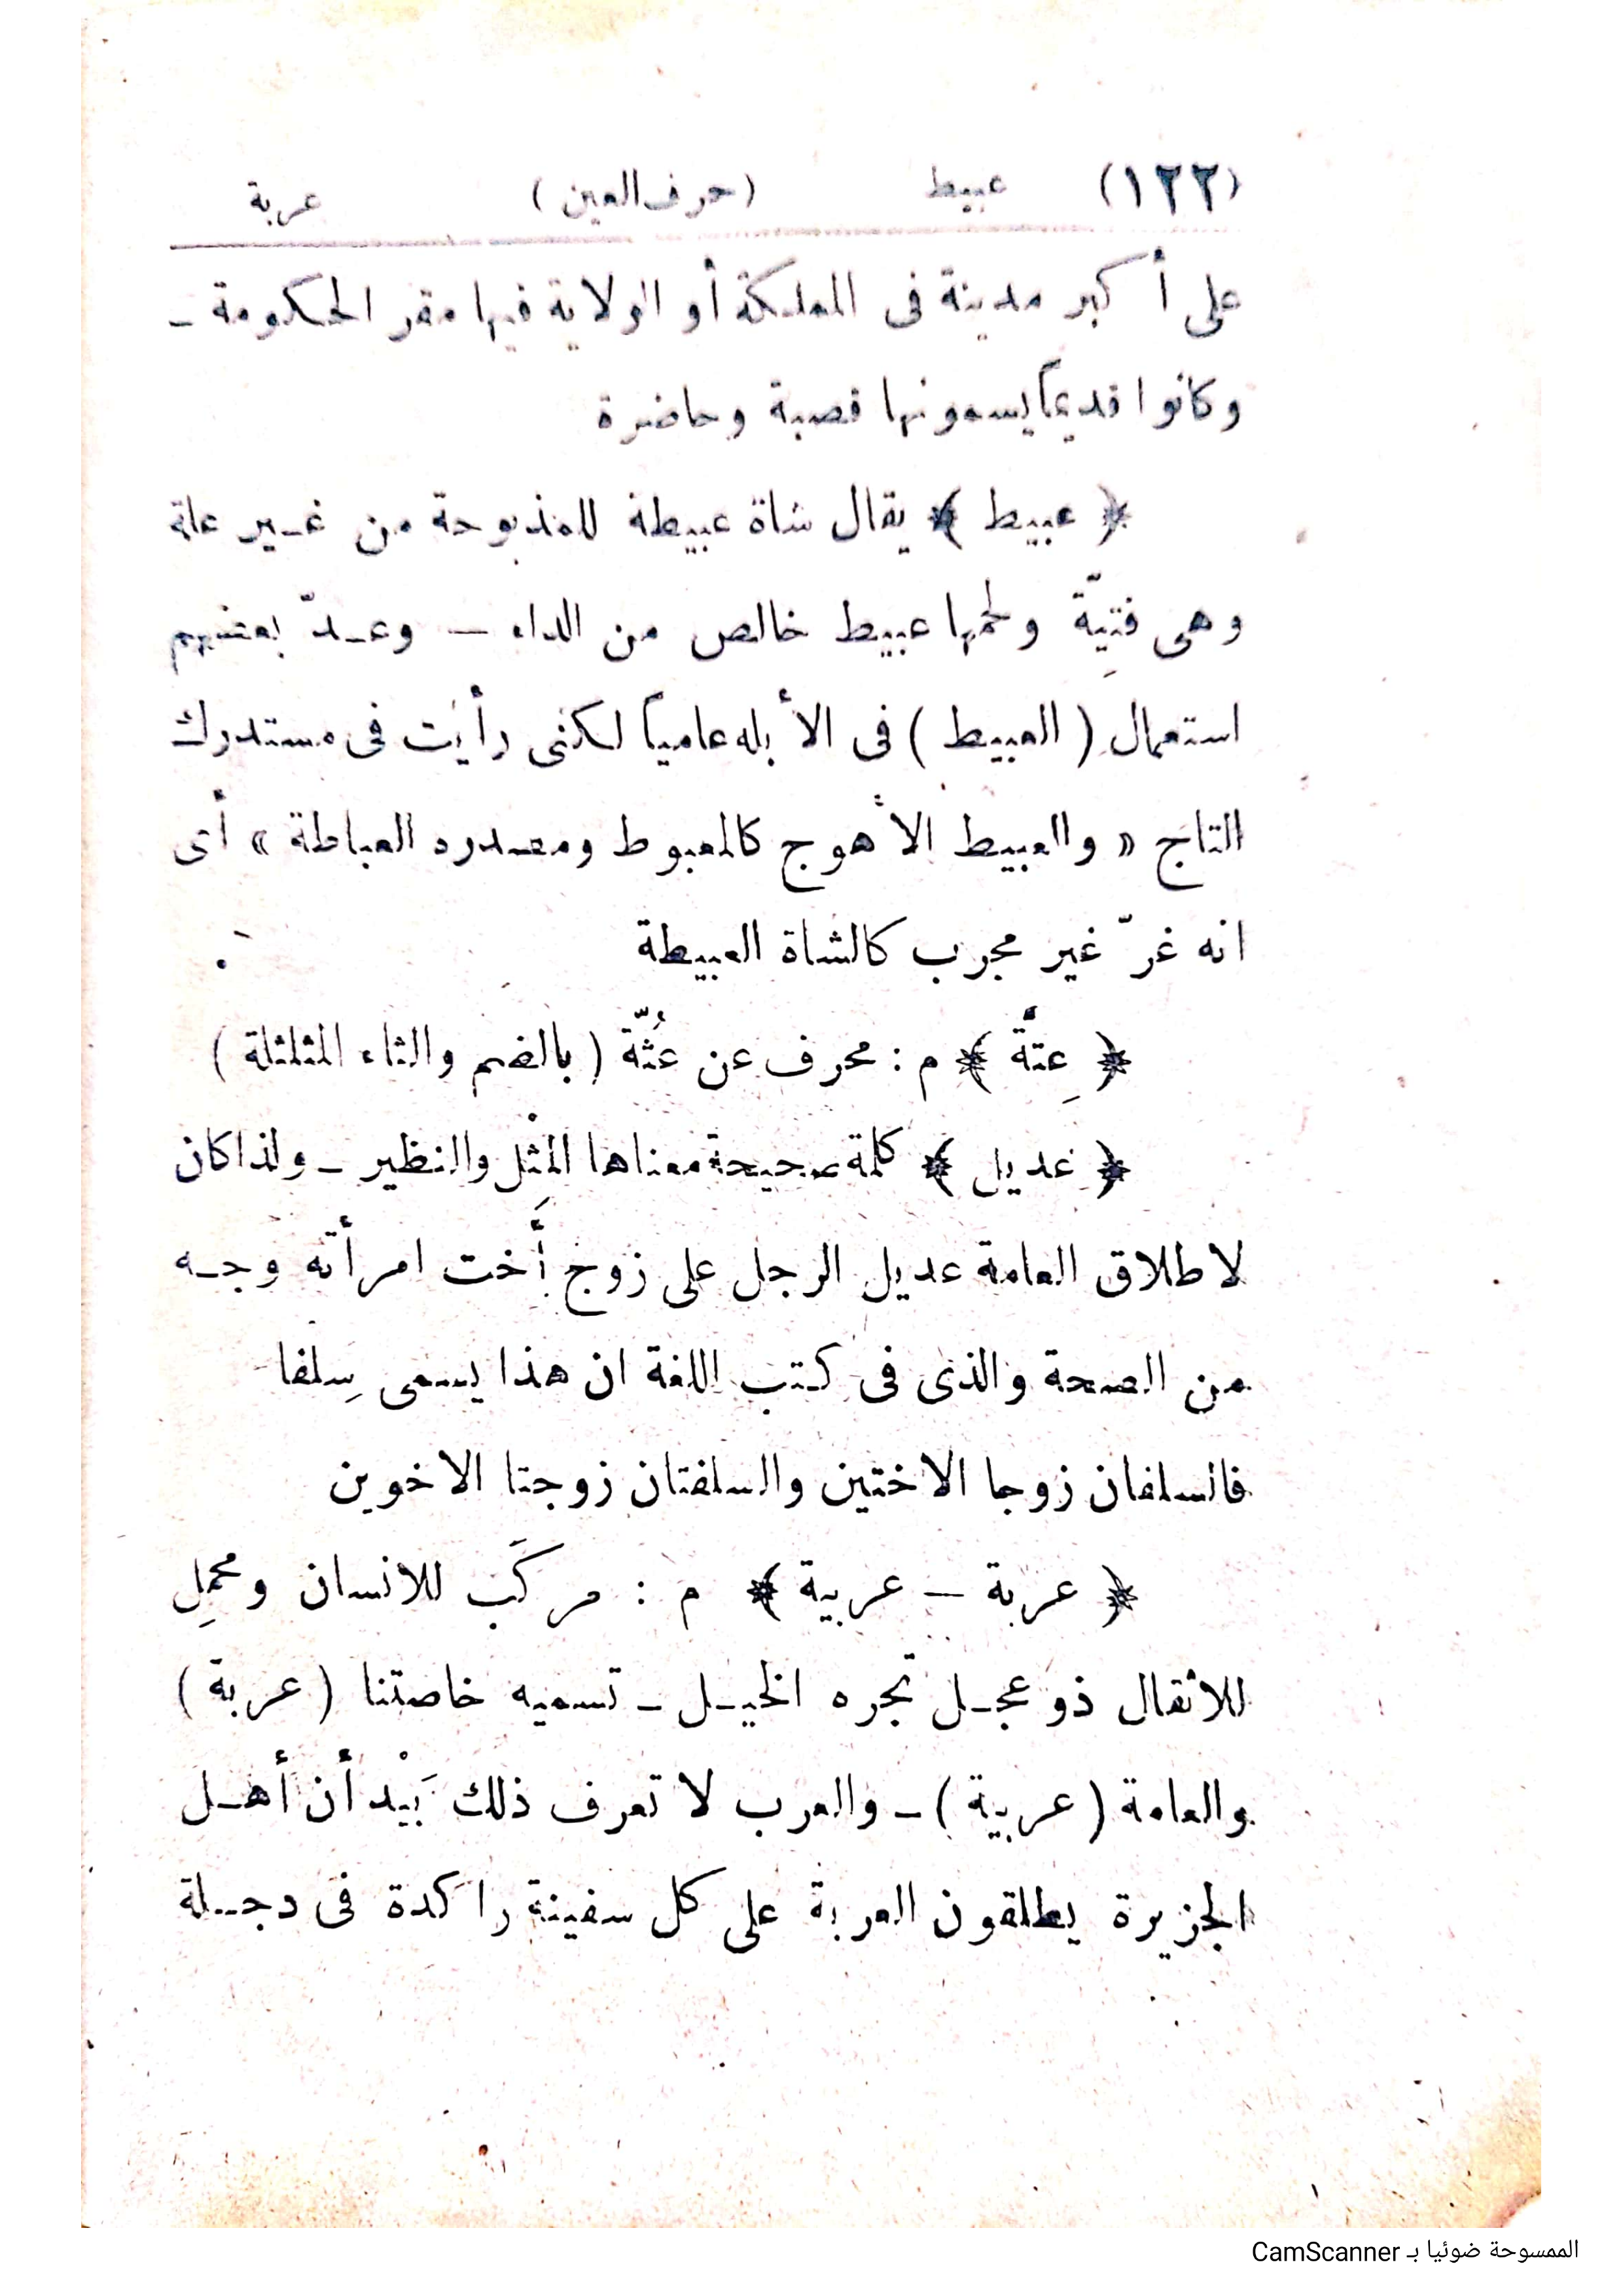 (١٢٢) عبيط (حرف العين) عربة
على أكبر مدينة فى المملكة أو الولاية فيها مقر الحكومة –
وكانوا قديماً يسمونها قصبة وحاضرة
﴿ عبيط ﴾ يقال شاة عبيطة للمذبوحة من غير علة
وهى فتِيّة ولحمها عبيط خالص من الداء – وعدّ بعضهم
استعمال ( العبيط ) فى الأبله عامياً لكنى رأيت فى مستدرك
التاج « والعبيط الأهوج كالمعبوط ومصدره العباطة » أى
انه غرّ غير مجرب كالشاة العبيطة
﴿ عِتَّة ﴾ م : محرف عن عُثّة ( بالضم والثاء المثلثلة )
﴿ عديل ﴾ كلمة صحيحة معناها المِثْل والنظير – ولذا كان
لاطلاق العامة عديل الرجل على زوج أُخت امرأته وجه
من الصحة والذى فى كتب اللغة ان هذا يسمى سِلفا
فالسلفان زوجا الاختين والسلفتان زوجتا الاخوين
﴿ عربة – عربية ﴾ م : مركَب للانسان ومحمِل
للاثقال ذو عجل تجره الخيل – تسميه خاصتنا ( عربة )
والعامة ( عربية ) – والعرب لا تعرف ذلك بَيْد أن أهل
الجزيرة يطلقون العربة على كل سفينة راكدة فى دجلة
الممسوحة ضوئيا بـ CamScanner